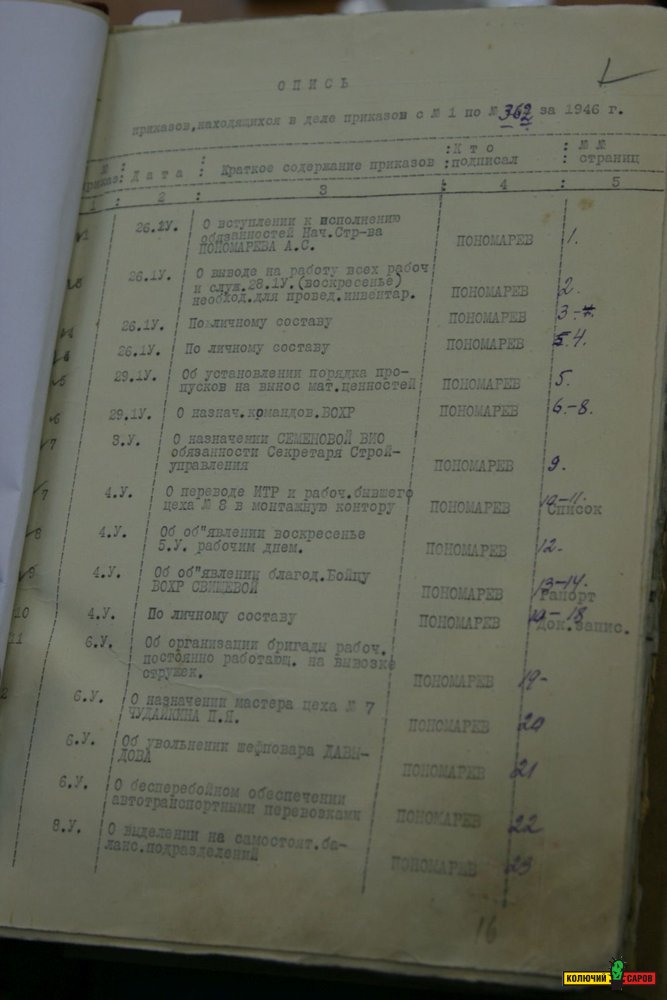 О П И С Ь
приказов, находящихся в деле приказов с № 1 по № 362 за 1946 г.
№ приказ : Д а т а : Краткое содержание приказов : К т о подписал : №№ страниц
1 : 2 : 3 : 4 : 5
1 26.1У. О вступлении к исполнению
обязанностей Нач.Стр-ва
ПОНОМАРЕВА А.С. ПОНОМАРЕВ 1.
26.1У. О выводе на работу всех рабоч
и служ.28.1У.(воскресенье)
необход.для провед.инвентар. ПОНОМАРЕВ 2.
26.1У. По личному составу ПОНОМАРЕВ 3-
26.1У. По личному составу ПОНОМАРЕВ 4.
5 29.1У. Об установлении порядка про-
пусков на вынос мат.ценностей ПОНОМАРЕВ 5.
6 29.1У. О назнач.командов.ВОХР ПОНОМАРЕВ 6.-8.
7 3.У. О назначении СЕМЕНОВОЙ ВИО
обязанности Секретаря Строй-
управления ПОНОМАРЕВ 9.
7 4.У. О переводе ИТР и рабоч.бывшего
цеха № 8 в монтажную контору ПОНОМАРЕВ 10-11. Список
8 4.У. Об об"явлении воскресенье
5.У. рабочим днем. ПОНОМАРЕВ 12.
9 4.У. Об об"явлении благод.Бойцу
ВОХР СВИЩЕВОЙ ПОНОМАРЕВ 13-14. Рапорт
10 4.У. По личному составу ПОНОМАРЕВ 18 Док.запис.
11 6.У. Об организации бригады рабоч.
постоянно работающ. на вывозке
стружек. ПОНОМАРЕВ 19-
2 6.У. О назначении мастера цеха № 7
ЧУДАЙКИНА П.Я. ПОНОМАРЕВ 20
6.У. Об увольнении шефповара ДАВЫ-
ДОВА ПОНОМАРЕВ 21
6.У. О бесперебойном обеспечении
автотранспортными перевозками ПОНОМАРЕВ 22
8.У. О выделении на самостоят.ба-
ланс.подразделений ПОНОМАРЕВ 23
16
КОЛЮЧИЙ САРОВ